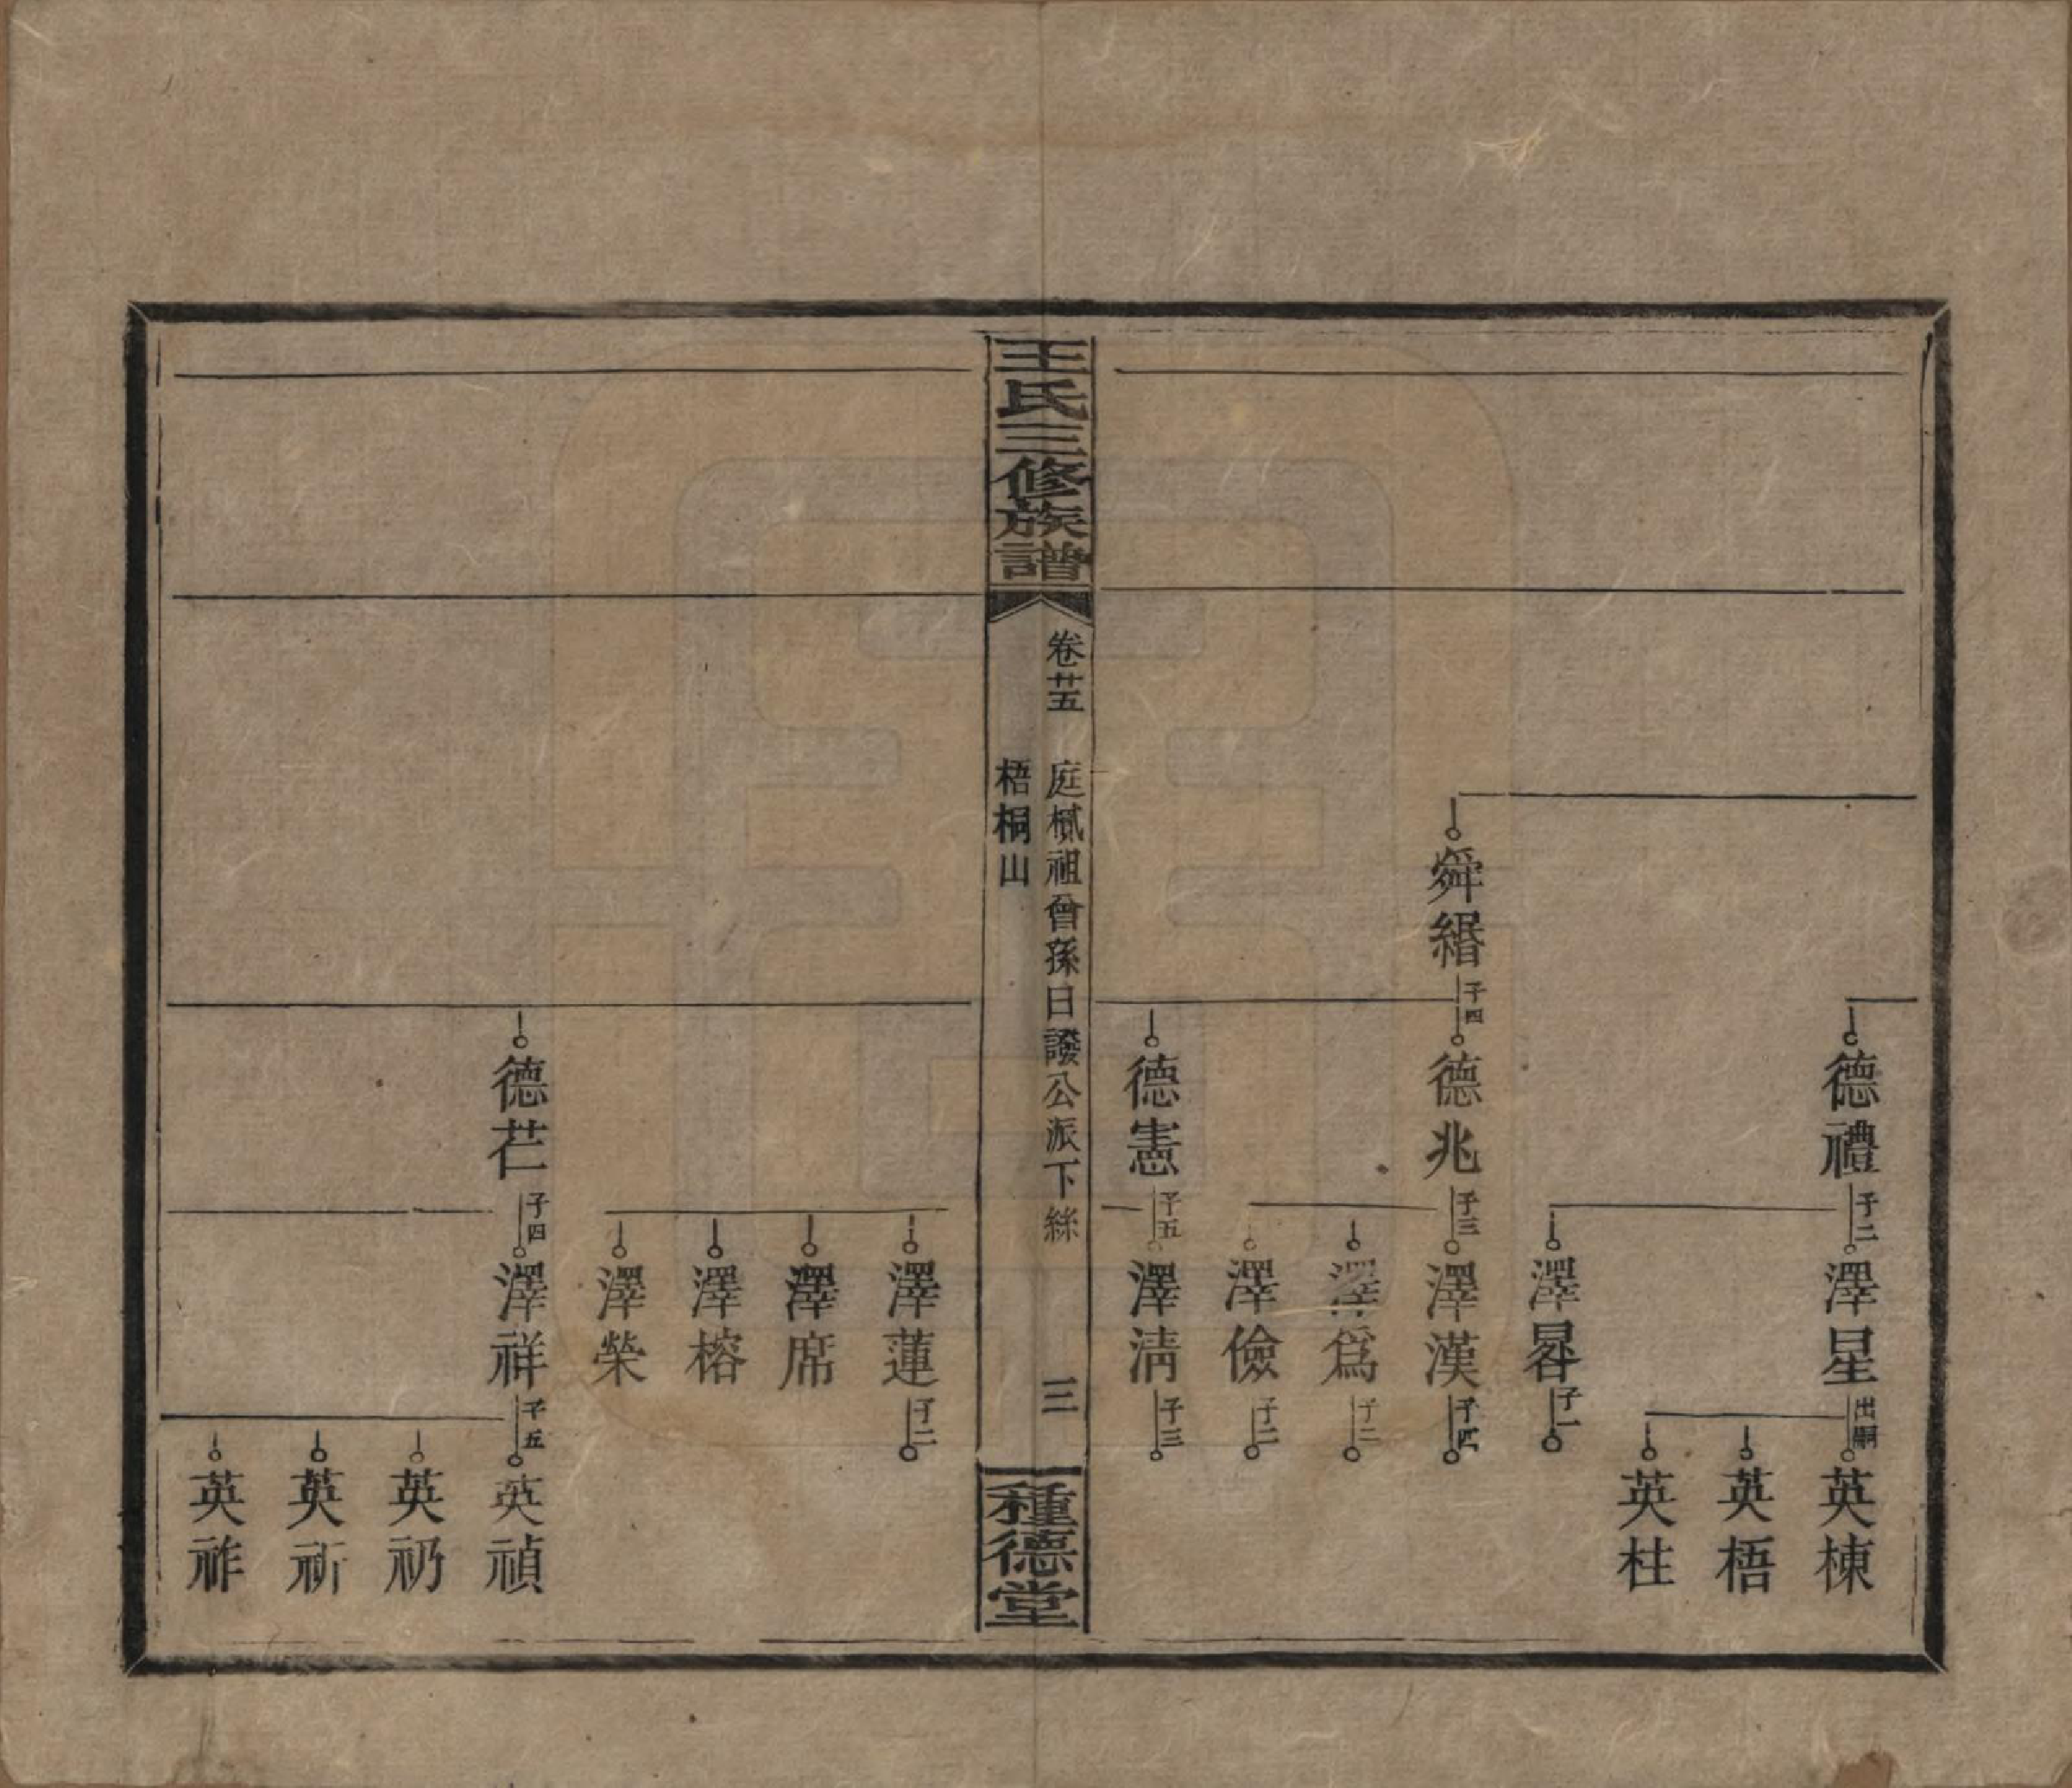 德禮
子二
澤星
出嗣
英棟
英梧
英柱
澤晷
子一
舜緡
子四
德兆
子三
澤漢
子四
澤爲
子二
澤儉
子二
德憲
子五
澤清
子三
王氏三修族譜
卷廿五
庭樲祖曾孫日譭公派下絲
梧桐山
三
種德堂
澤蓮
子二
澤席
澤榕
澤榮
德芢
子四
澤祥
子五
英禎
英礽
英祈
英祚